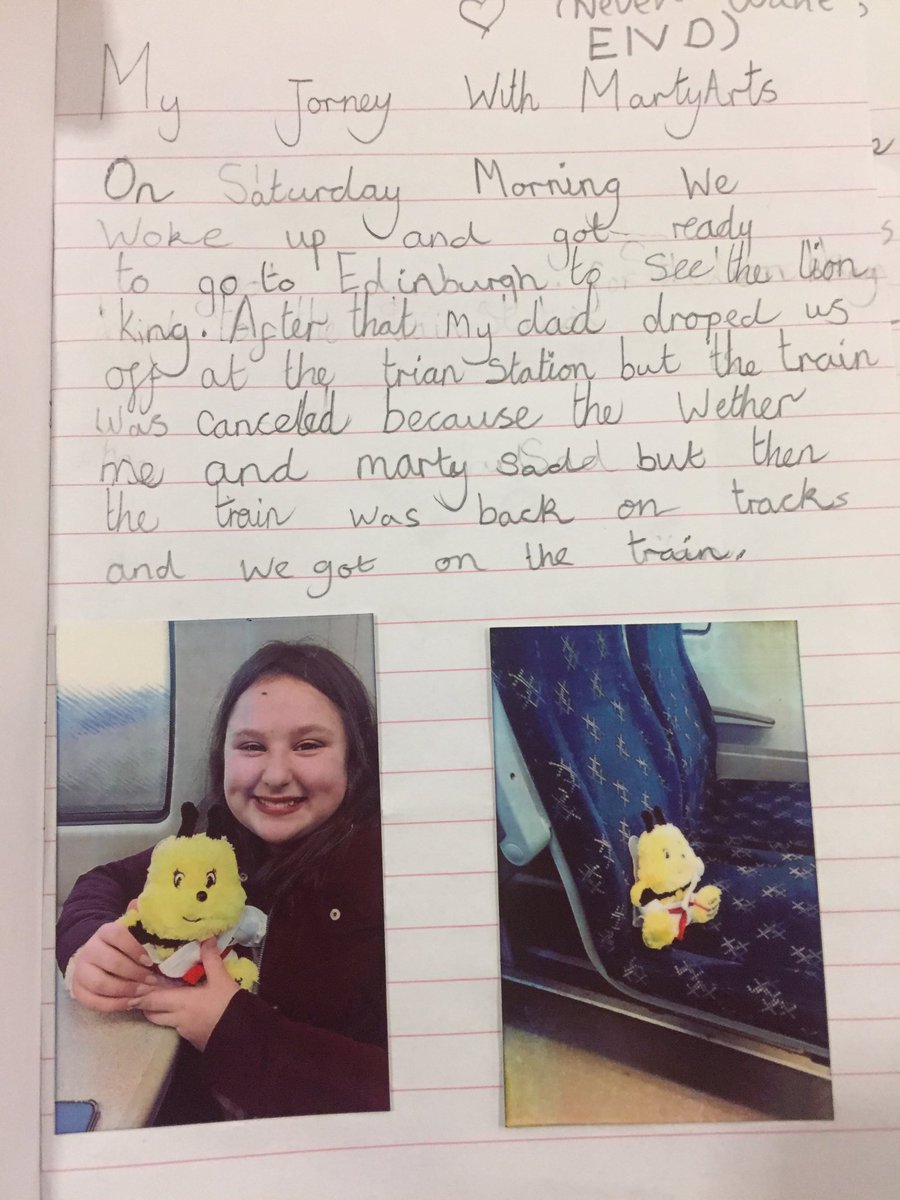 (Never
END)
My Jorney With MartyArts
On Saturday Morning We
Woke up and got ready
to go to Edinburgh to see the lion
king. After that my dad droped us
off at the trian station but the train
was canceled because the Wether
me and marty sadd but then
the train was back on tracks
and we got on the train.